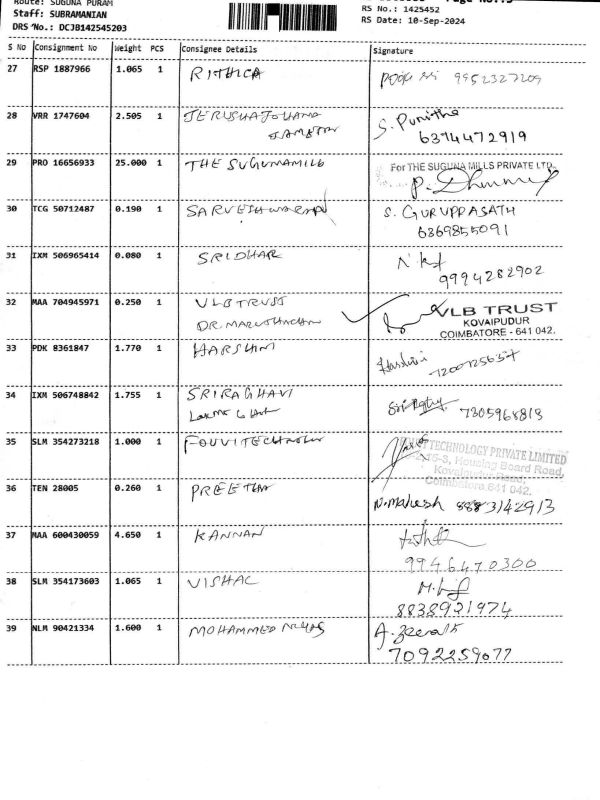 Route: SUGUNA PURAM
Staff: SUBRAMANIAN
DRS No.: DCJB142545203
RS No.: 1425452
RS Date: 10-Sep-2024
S No Consignment No Weight PCS Consignee Details Signature
27 RSP 1887966 1.065 1 RITHICA 9952327209
28 VRR 1747604 2.505 1 JERUSHA JOHANA S. Punitha
6374472919
29 PRO 16656933 25.000 1 THE SUGUNA MILLS For THE SUGUNA MILLS PRIVATE LTD.
30 TCG 50712487 0.190 1 SARVESHWARAN S. GURUPPASATH
6369855091
31 IXM 506965414 0.080 1 SRIDHAR
9994282902
32 MAA 704945971 0.250 1 VLB TRUST VLB TRUST
DR. KOVAIPUDUR
COIMBATORE - 641 042.
33 PDK 8361847 1.770 1 HARSHINI Harshini
34 IXM 506748842 1.755 1 SRIRAGHAVI 7305968813
35 SLM 354273218 1.000 1 TECHNOLOGY PRIVATE LIMITED
Housing Board Road,
Kovaipudur Road,
Coimbatore 641 042.
36 TEN 28005 0.260 1 PREETHA N. Mahesh 8883142913
37 MAA 600430059 4.650 1 KANNAN
9946470300
38 SLM 354173603 1.065 1 VISHAL
8838921974
39 NLM 90421334 1.600 1 MOHAMMED A. Zeenath
7092259077